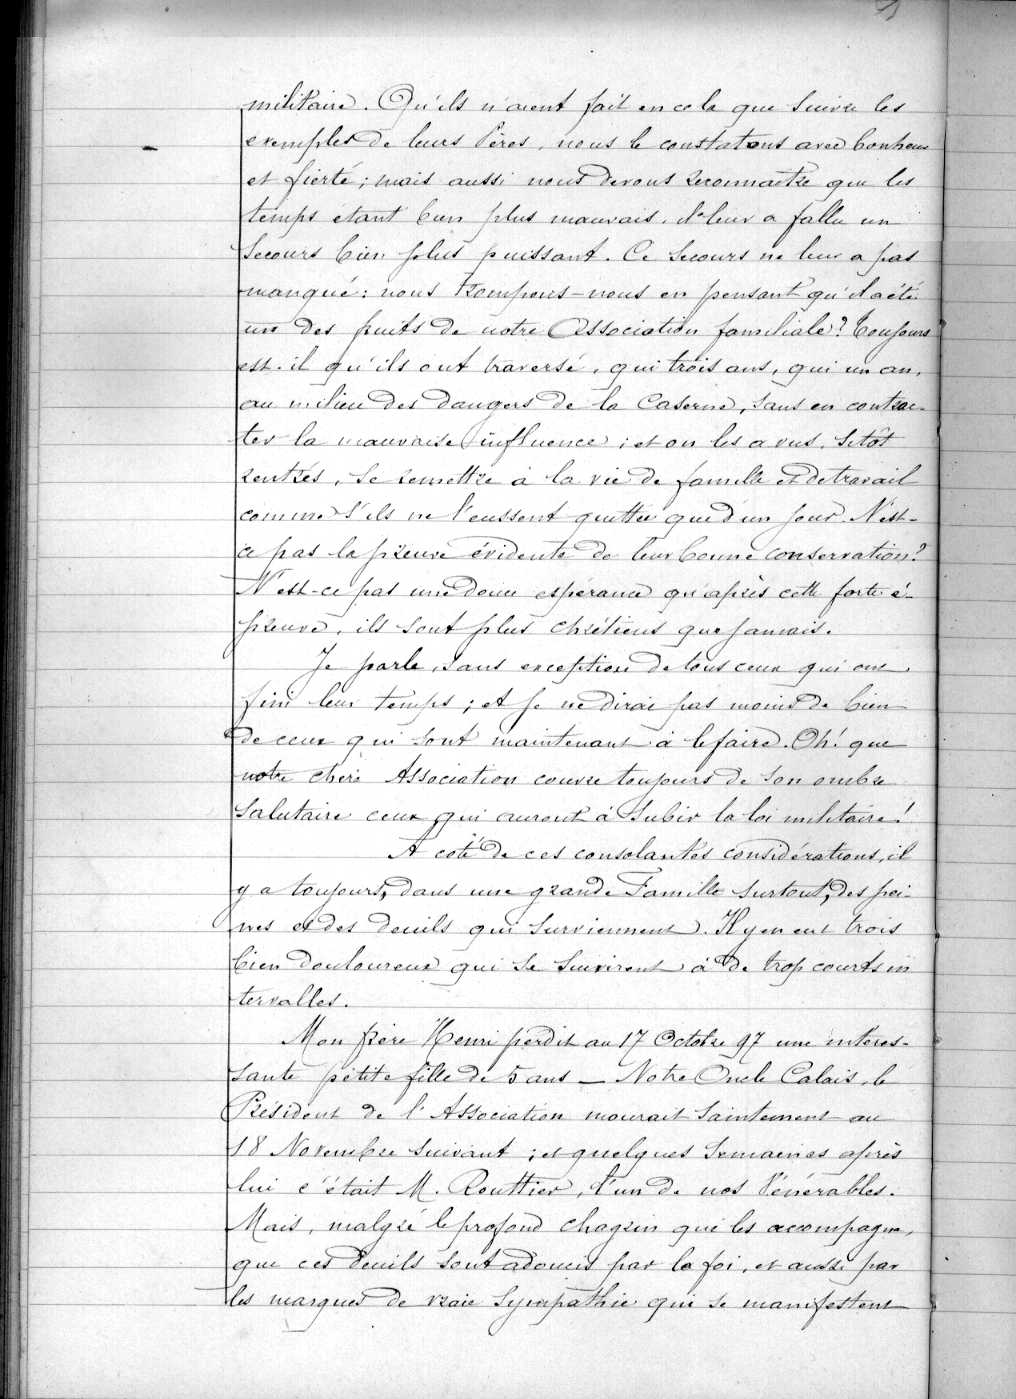 militaire. Qu'ils n'aient fait en cela que suivre les
exemples de leurs Pères, nous le constatons avec bonheur
et fierté; mais aussi nous devons reconnaître que les
temps étant bien plus mauvais, il leur a fallu un
secours bien plus puissant. Ce secours ne leur a pas
manqué: nous trompons-nous en pensant qu'il a été
un des fruits de notre Association familiale? Toujours
est-il qu'ils ont traversé, qui trois ans, qui un an,
au milieu des dangers de la Caserne, sans en contrac-
ter la mauvaise influence; et on les a vus, sitôt
rentrés, se remettre à la vie de famille et de travail
comme s'ils ne l'eussent quittée que d'un jour. N'est-
ce pas la preuve évidente de leur bonne conservation?
N'est-ce pas une douce espérance qu'après cette forte é-
preuve, ils sont plus chrétiens que jamais.
Je parle, sans exception de tous ceux qui ont
fini leur temps; et je ne dirai pas moins de bien
de ceux qui sont maintenant à le faire. Oh! que
notre chère Association couvre toujours de son ombre
salutaire ceux qui auront à subir la loi militaire!
A coté de ces consolantes considérations, il
y a toujours, dans une grande Famille surtout, des pei-
nes et des deuils qui surviennent. Il y en eut trois
bien douloureux qui se suivirent à de trop courts in
tervalles.
Mon frère Henri perdit au 17 Octobre 97 une intéres-
sante petite fille de 5 ans — Notre Oncle Calais, le
Président de l'Association mourait saintement au
18 Novembre suivant; et quelques semaines après
lui c'était M. Routtier, l'un de nos Vénérables.
Mais, malgré le profond chagrin qui les accompagne,
que ces deuils sont adoucis par la foi, et aussi par
les marques de vraie sympathie qui se manifestent